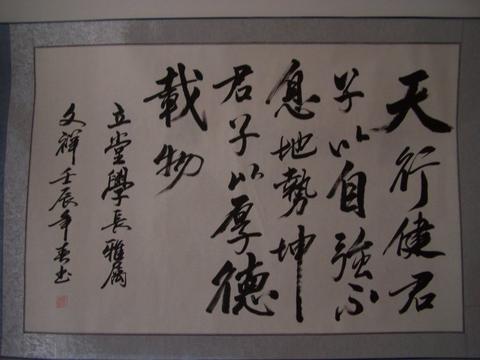 天行健君
子以自强不
息地勢坤
君子以厚德
載物
立堂學長雅属
文祥壬辰年春书